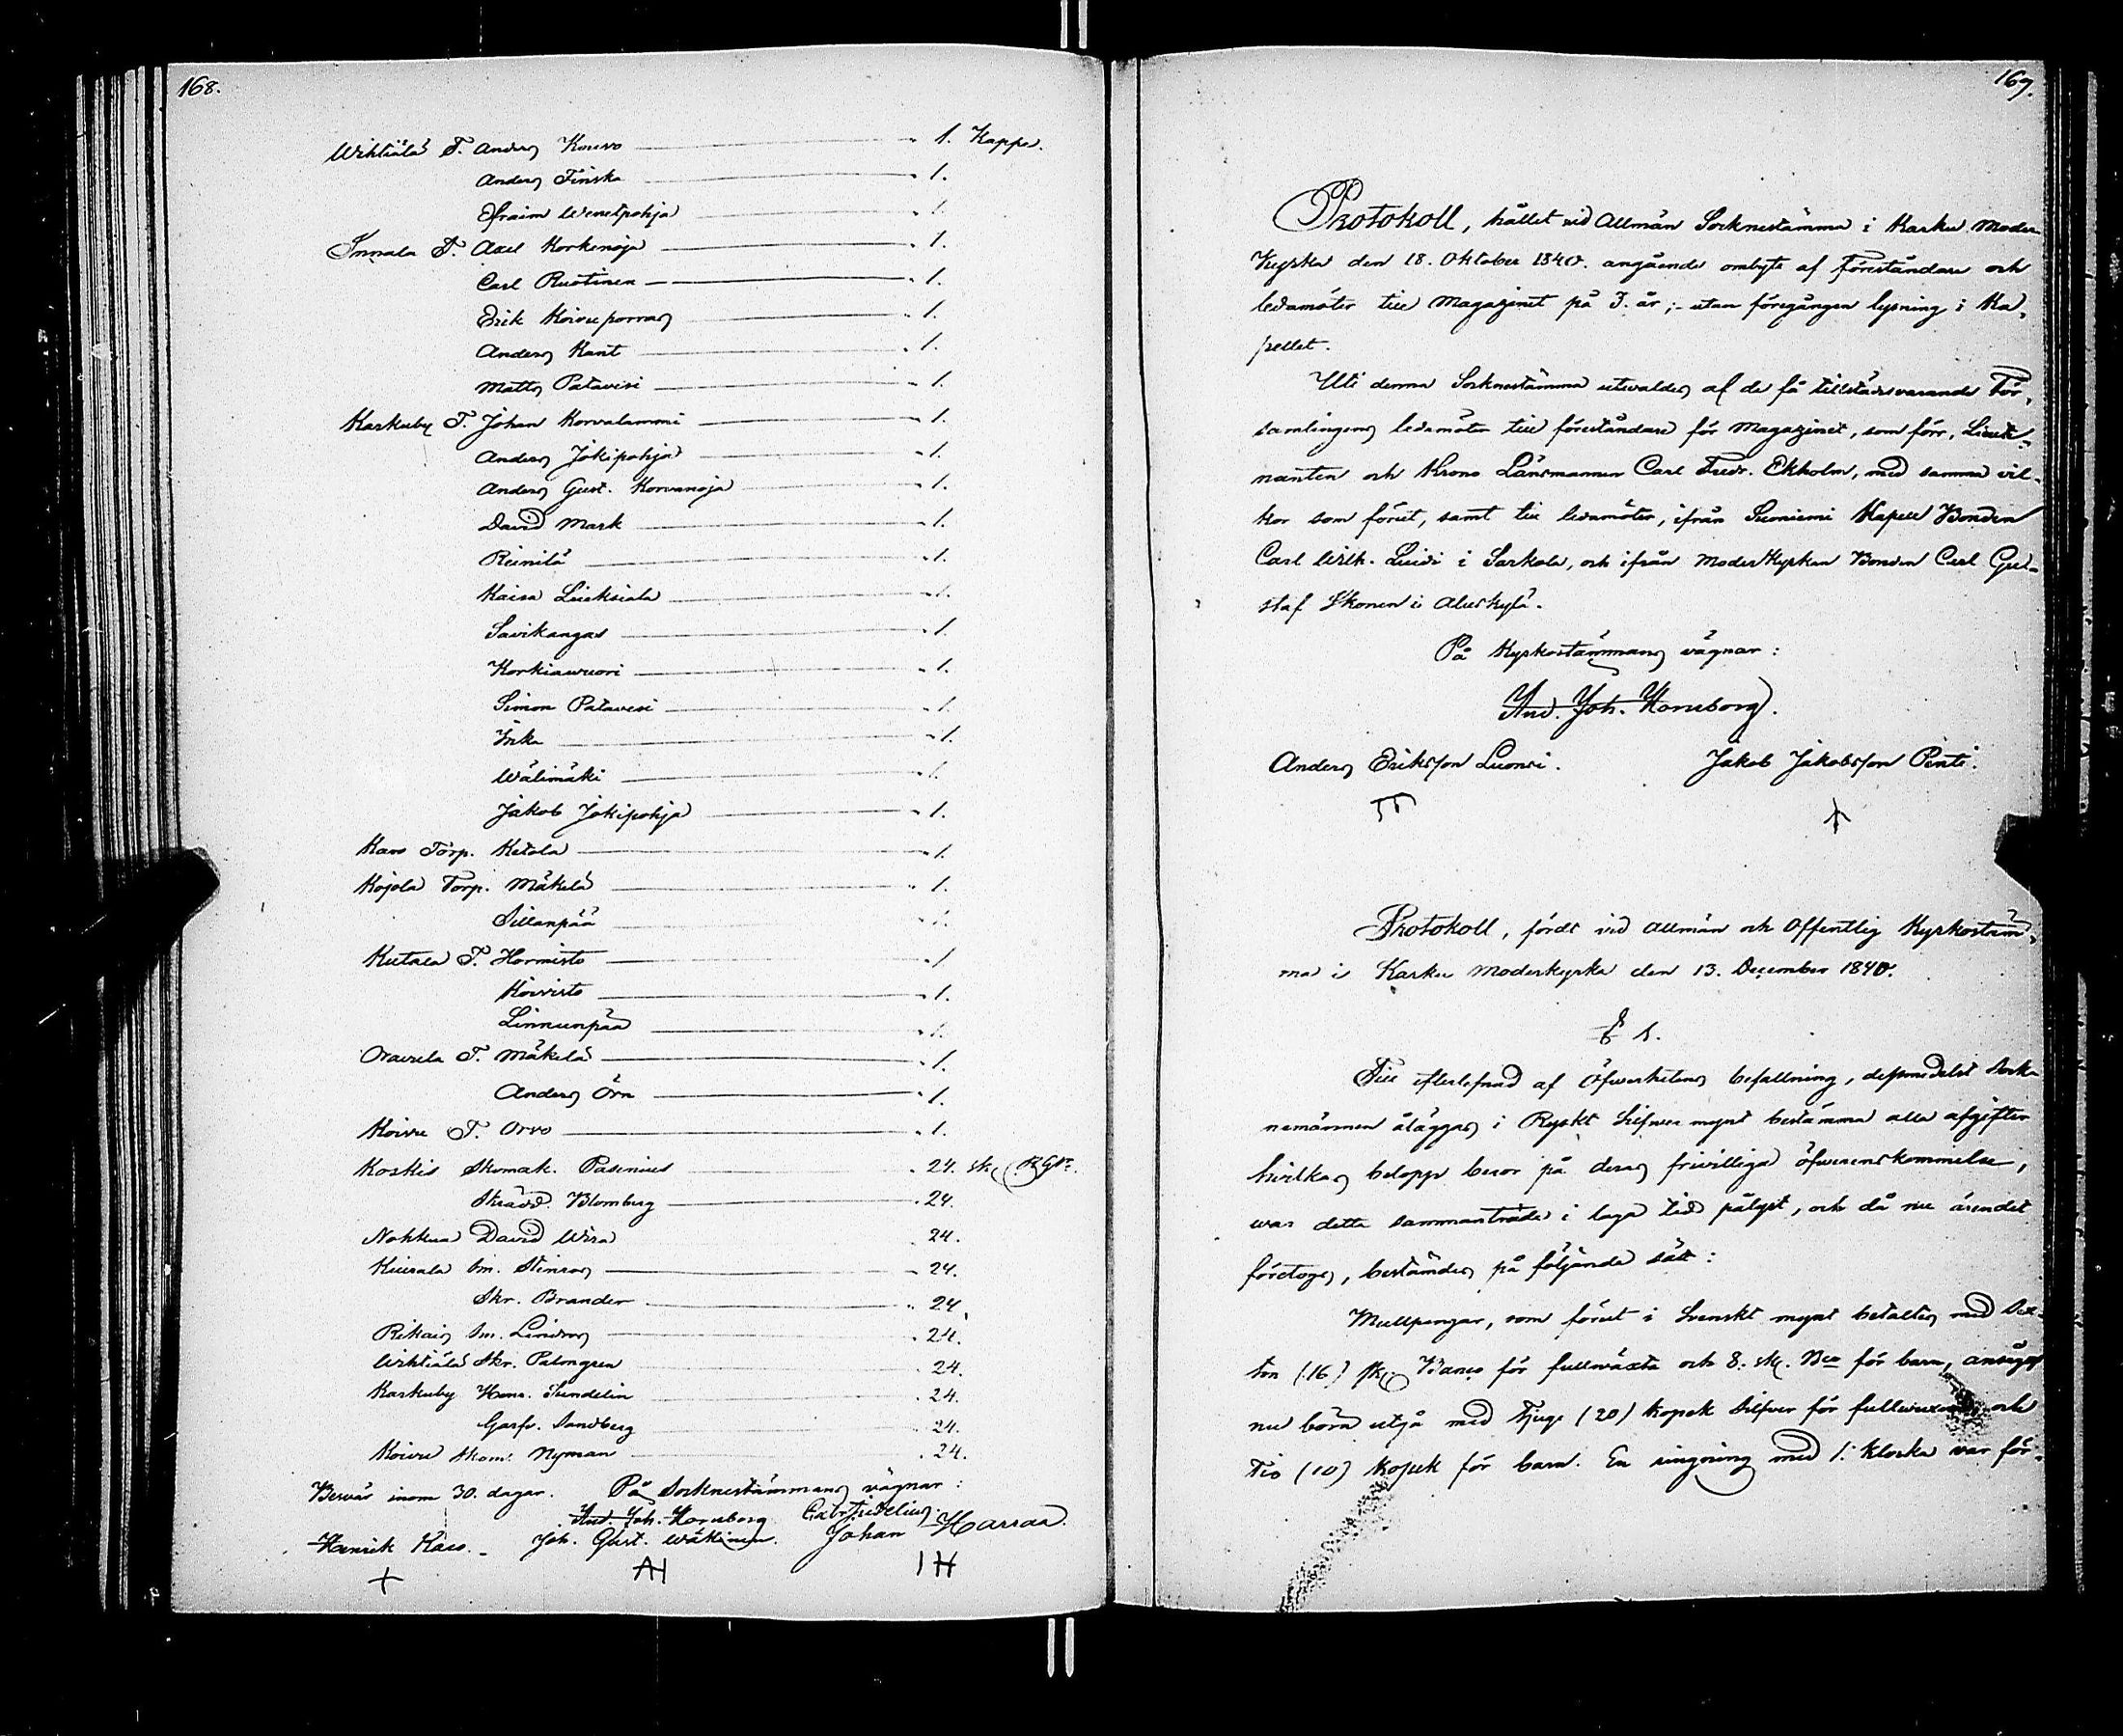 168.
Wihtiälä T. Anders Kouvo 1. Kappe.
Anders Finska 1.
Efraim Wenetpohja 1.
Innala T. Axel Korkenoja 1.
Carl Ruotinen 1.
Erik Koivuporras 1.
Anders Kant 1.
Matts Patavesi 1.
Karkuby T. Johan Korvalammi 1.
Anders Jokipohja 1.
Anders Gust. Korvanoja 1.
David Mark 1.
Reinilä 1.
Kaisa Liuksiala 1.
Savikangas 1.
Korkiawuori 1.
Simon Patavesi 1.
Inka 1.
Wälimäki 1.
Jakob Jokipohja 1.
Karo Torp. Ketola 1.
Kojola Torp. Mäkelä 1.
Sillanpää 1.
Kutala T. Hormisto 1
Koivisto 1.
Linnunpää 1.
Oravula T. Mäkelä 1.
Anders Örn 1.
Koivu T. Orvo 1.
Koskis Skomak. Pasenius 24. sk. RGs.
Skrädd. Blomberg 24.
Nohkua David Wira 24.
Kiurala Sm. Stenros 24.
Skr. Brander 24.
Rikais Sm. Lindros 24.
Wihtiälä Skr. Palongren 24.
Karkuby Hans. Sundelin 24.
Garfv. Sandberg 24.
Koivu Skom. Nyman 24.
Besvär inom 30. dagar. På Socknestämmans vägnar:
And. Joh. Hornborg Gabr Fidelius
Henrik Karo. Joh. Gust. Wäkinen. Johan Harraa.
AH IH
169.
Protokoll, hållet vid Allmän Socknestämma i Karku Moder
Kyrka den 18. Oktober 1840. angående ombyte af Föreståndare och
ledamöter till Magazinet på 3. år;- utan föregången lysning i Ka,
pellet.
Uti denna Socknestämma utvaldes af de få tillstädesvarande För,
samlingens ledamöter till föreståndare för Magazinet, som förr, Lieute,
nanten och Krono Länsmannen Carl Fredr. Ekholm, med samma vil,
kor som förut, samt till ledamöter, ifrån Suoniemi Kapell Bonden
Carl Wilh. Luidi i Sarkola, och ifrån Moderkyrkan Bonden Carl Gu,
staf Ikonen i Aluskylä.
På Kyrkostämmans vägnar:
And. Joh. Hornborg.
Anders Eriksson Luonsi. Jakob Jakobsson Penti.
Protokoll, fördt vid Allmän och Offentlig Kyrkostäm,
ma i Karku Moderkyrka den 13. December 1840.
§ 1.
Till efterlefnad af Öfwerhetens befallning, dessmedelst Sock
nemännen åläggas i Ryskt Silfwer mynt bestämma alla afgifter
hvilkas belopp beror på deras frivilliga öfwerenskommelse,
war detta sammanträde i laga tid pålyst, och då nu ärendet
företogs, bestämdes på följande sätt:
Mullpengar, som förut i Svenskt mynt betaltes med Sex,
ton (16) sk. Banco för fullwäxta och 8. sk. Bco för barn, ansågos
nu böra utgå med Tjugo (20) kopek Silfver för fullwuxna och
Tio (10) kopek för barn. En ringning med 1. klocka var för,